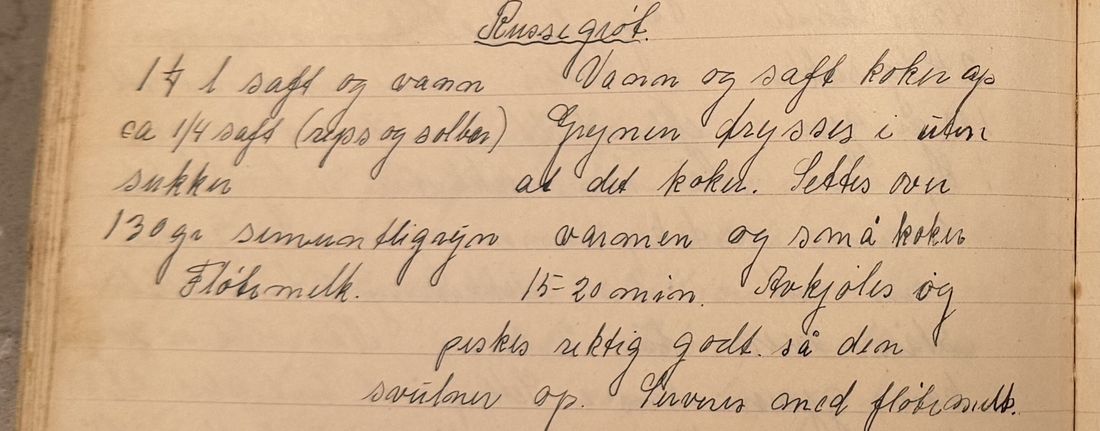 Russegrøt.
1 1/4 l saft og vann Vann og saft koker op
ca 1/4 saft (rips og solbær) Grynen drysses i uten
sukker at det koker. Settes over
130 gr semuntligrÿn varmen og små koker
Fløtemelk. 15-20 min. Avkjøles og
piskes riktig godt. så den
svulner op. Serveres med fløtemelk.